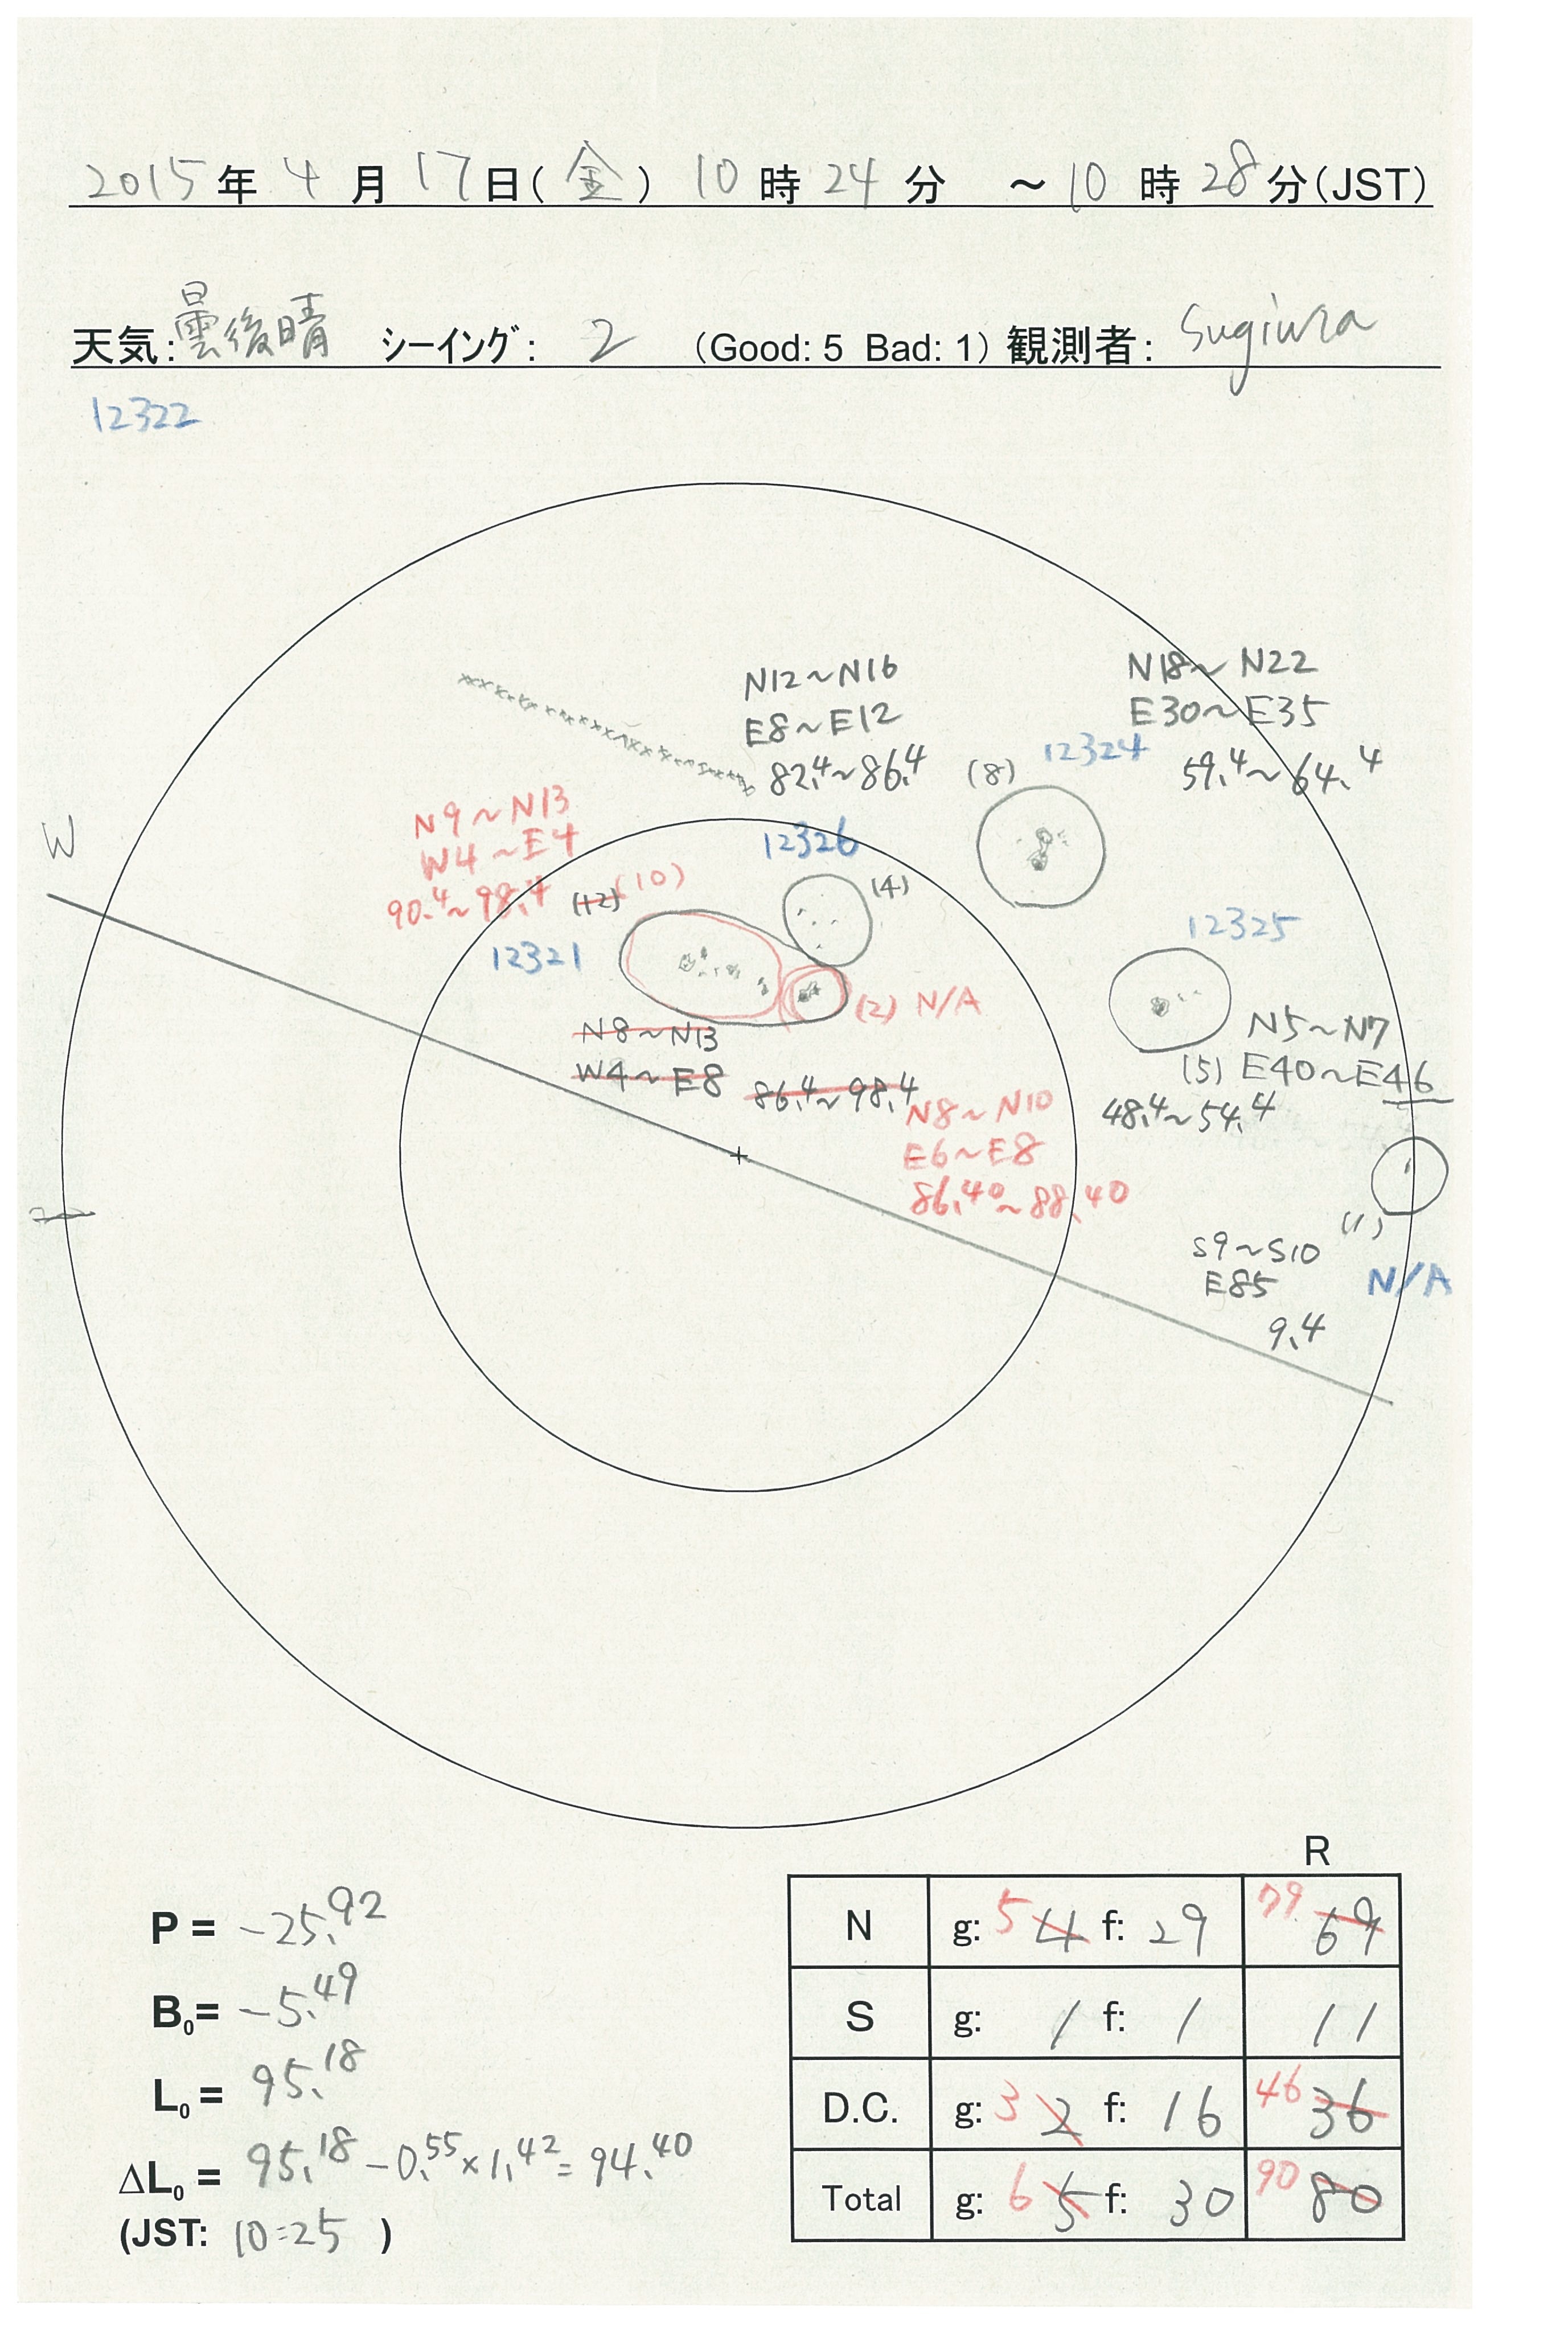 2015年 4月 17日(金) 10時 24分 ～10時 28分(JST)
天気:曇後晴 シーイング: 2 (Good: 5 Bad: 1) 観測者: Sugiura
12322
N12～N16
E8～E12
82.4～86.4
N18～N22
E30～E35
59.4～64.4
(8)
12324
W
N9～N13
W4～E4
90.4～98.4
(12) (10)
12326
(4)
12321
12325
(2) N/A
N8～N13
W4～E8
86.4～98.4
N5～N7
(5) E40～E46
48.4～54.4
N8～N10
E6～E8
86.40～88.40
(1)
S9～S10
E85
9.4
N/A
R
P = -25.92
B0= -5.49
L0 = 95.18
ΔL0 = 95.18-0.55×1.42=94.40
(JST: 10:25 )
N g: 5 4 f: 29 79 69
S g: 1 f: 1 11
D.C. g: 3 2 f: 16 46 36
Total g: 6 5 f: 30 90 80